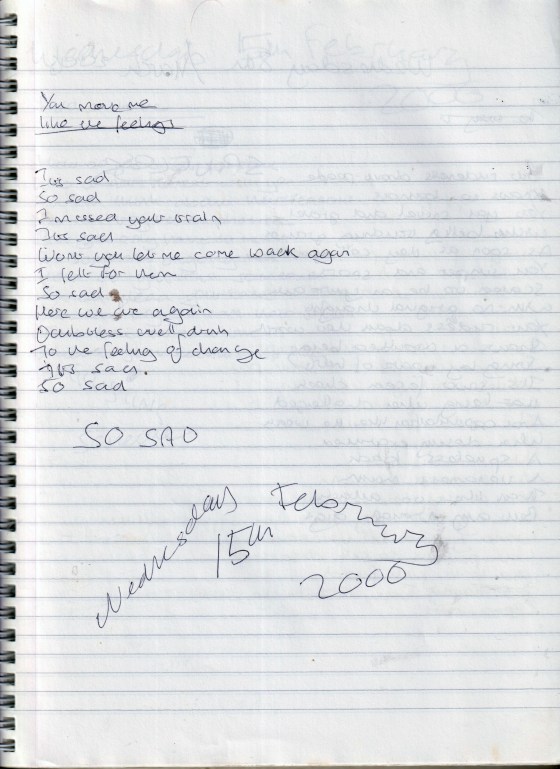 You move me
like the feelings
Its sad
So sad
I missed your train
Its sad
Wont you let me come back again
I felt for them
So sad
Here we are again
Doubtless well drunk
To the feeling of change
Its sad.
So sad
SO SAD
Wednesday 15th February
2000